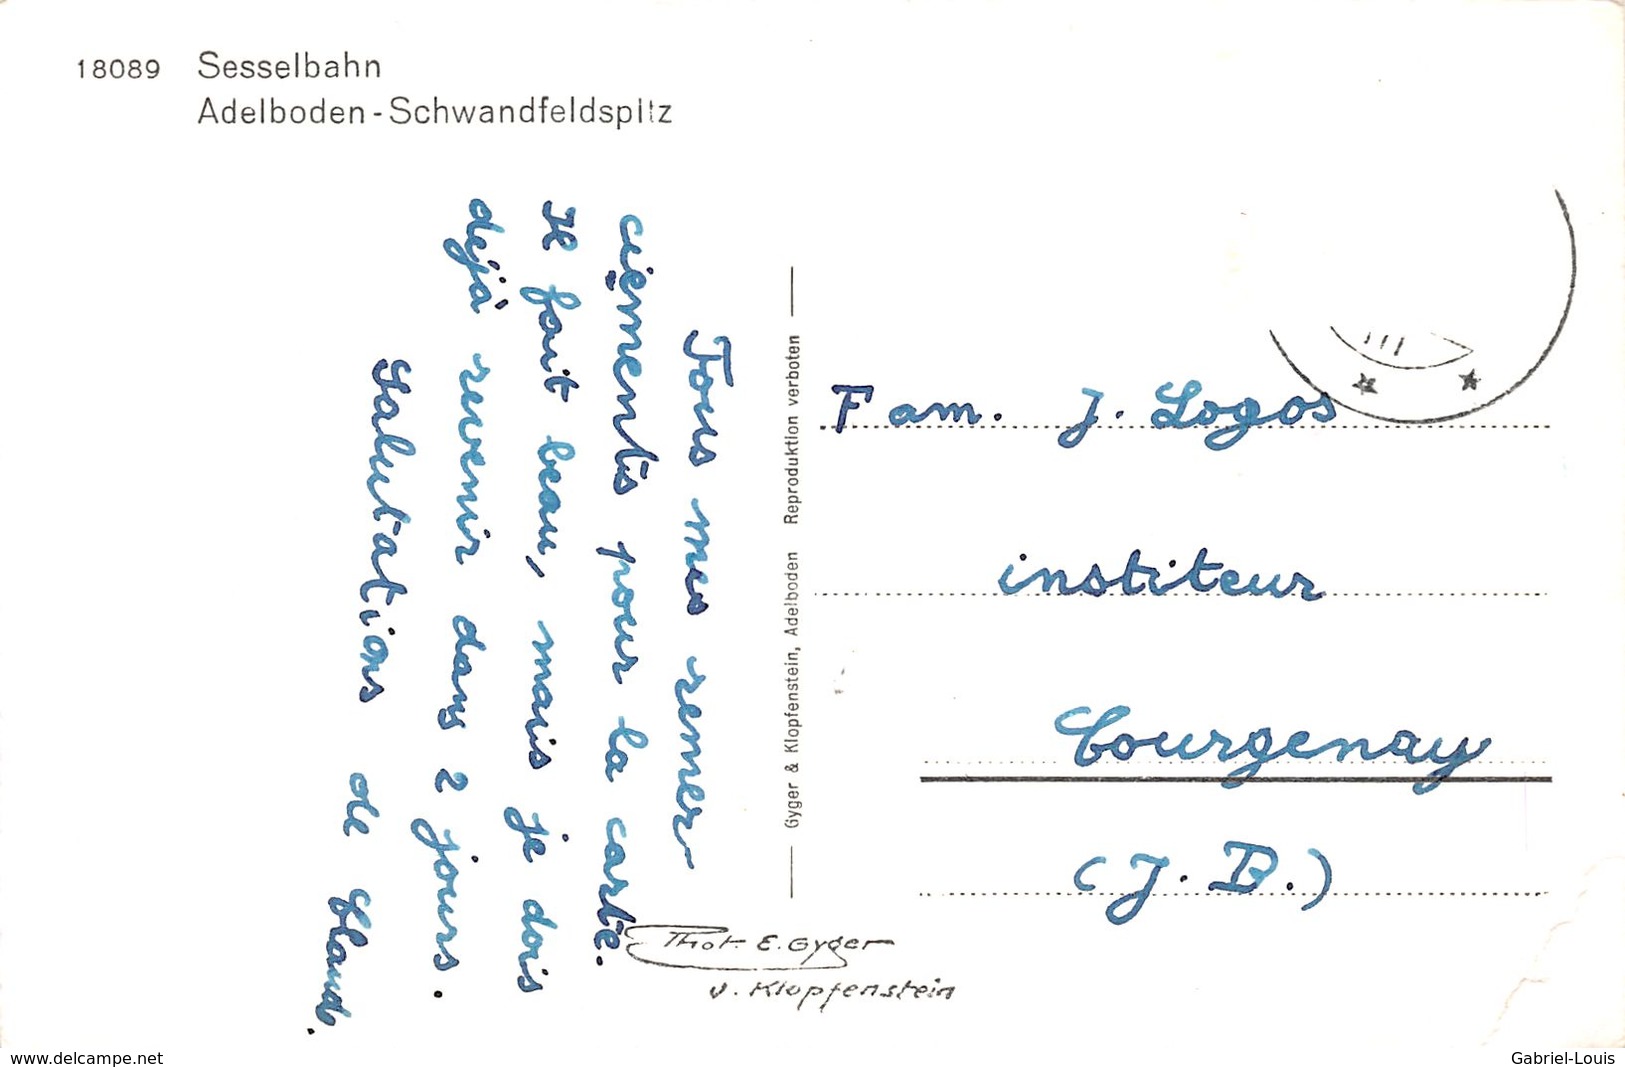 18089 Sesselbahn
Adelboden-Schwandfeldspitz
Tous mes remer-
ciements pour la carte.
Il fait beau, mais je dois
déjà revenir dans 2 jours.
Salutations de
Gyger & Klopfenstein, Adelboden Reproduktion verboten
Fam. J. Logos
instituteur
Courgenay
(J. B.)
Phot. E. Gyger
v. Klopfenstein
www.delcampe.net
Gabriel-Louis